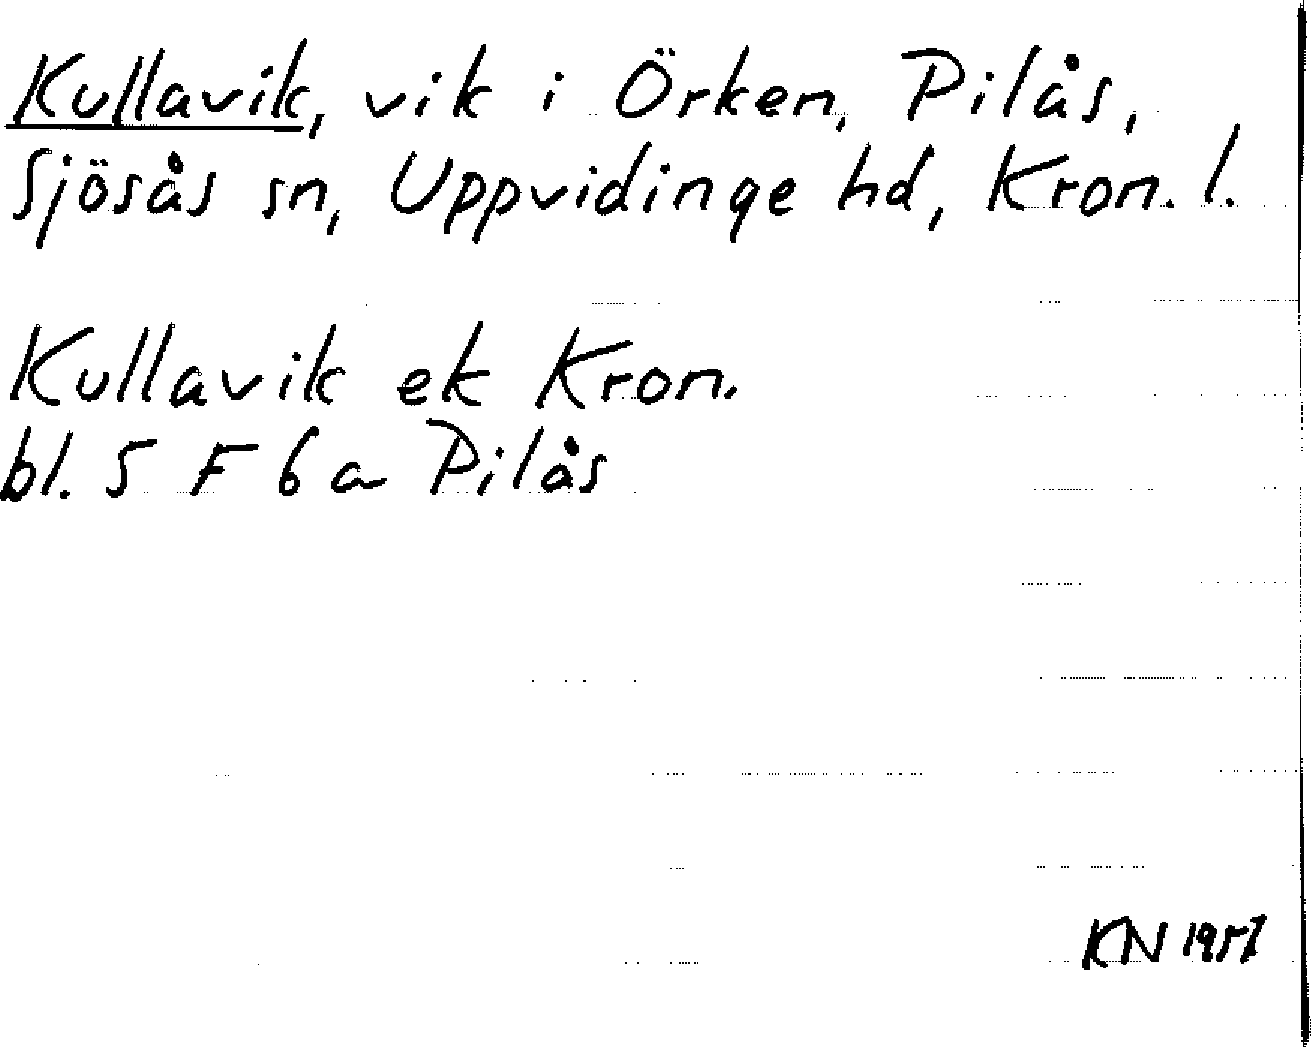 Kullavik, vik i Örken, Pilås,
Sjösås sn, Uppvidinge hd, Kron. l.
Kullavik ek Kron.
bl. 5 F 6 a Pilås
KN 1957